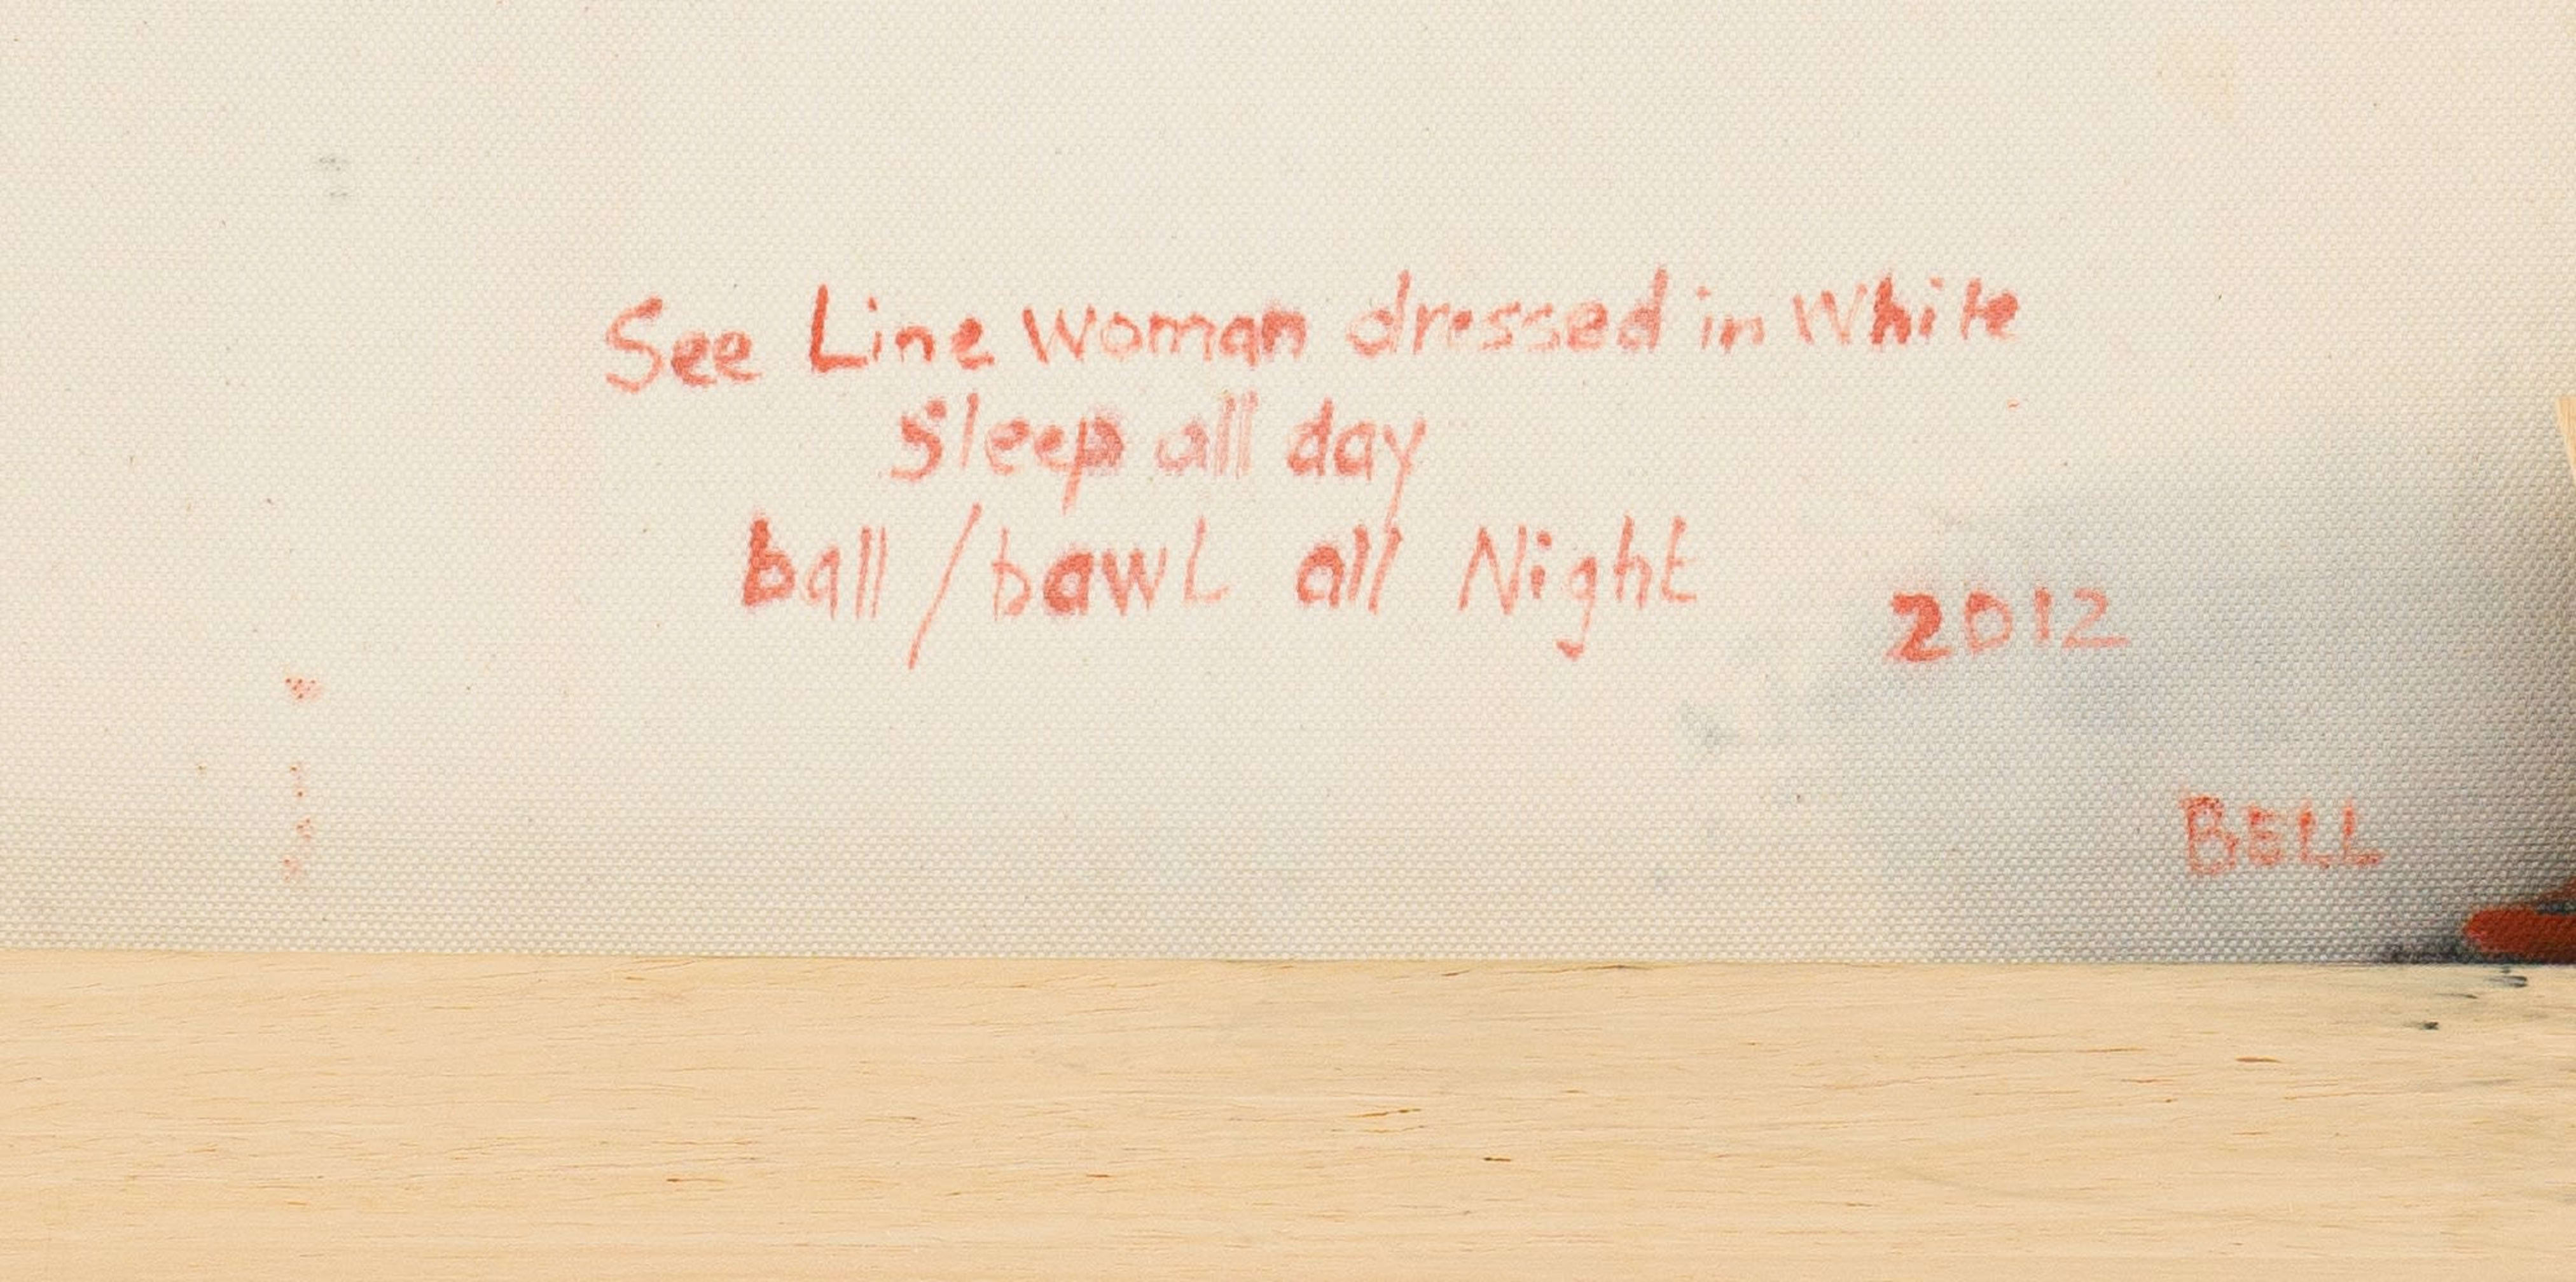 See Line woman dressed in White
Sleep all day
ball / bawL all Night
2012
BELL